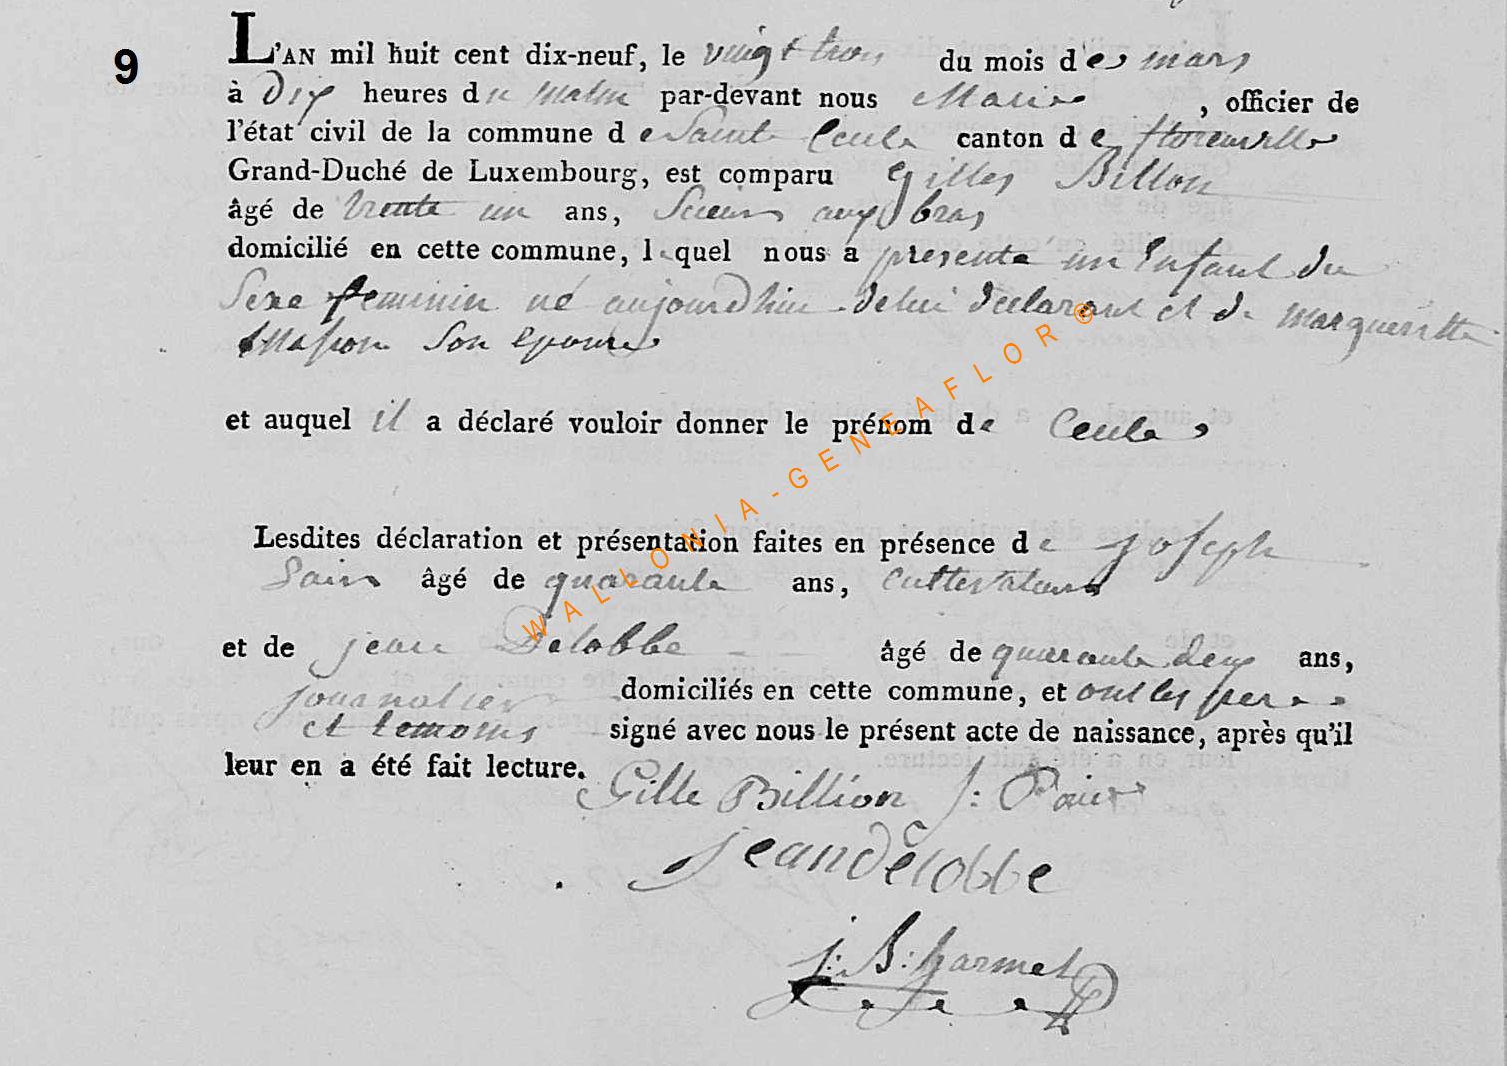 9
L'AN mil huit cent dix-neuf, le vingt trois du mois de mars
à Dix heures du matin par-devant nous Maire , officier de
l'état civil de la commune d e Sainte Cecile canton d e florenville
Grand-Duché de Luxembourg, est comparu Gilles Billon
âgé de trente un ans, Scieur aux bras
domicilié en cette commune, lequel nous a presenté un Enfant du
Sexe feminin né aujourdhui de lui declarant et de margueritte
Masson Son epouse
et auquel il a déclaré vouloir donner le prénom de Cecile
Lesdites déclaration et présentation faites en présence de joseph
âgé de quarante ans, Cultivateur
et de jean Delobbe âgé de quarante deux ans,
journalier domiciliés en cette commune, et ont les pere
et temoins signé avec nous le présent acte de naissance, après qu'il
leur en a été fait lecture.
Gille Billion J:
jean Delobbe
j: B: harmel
WALLONIA-GENEAFLOR ©